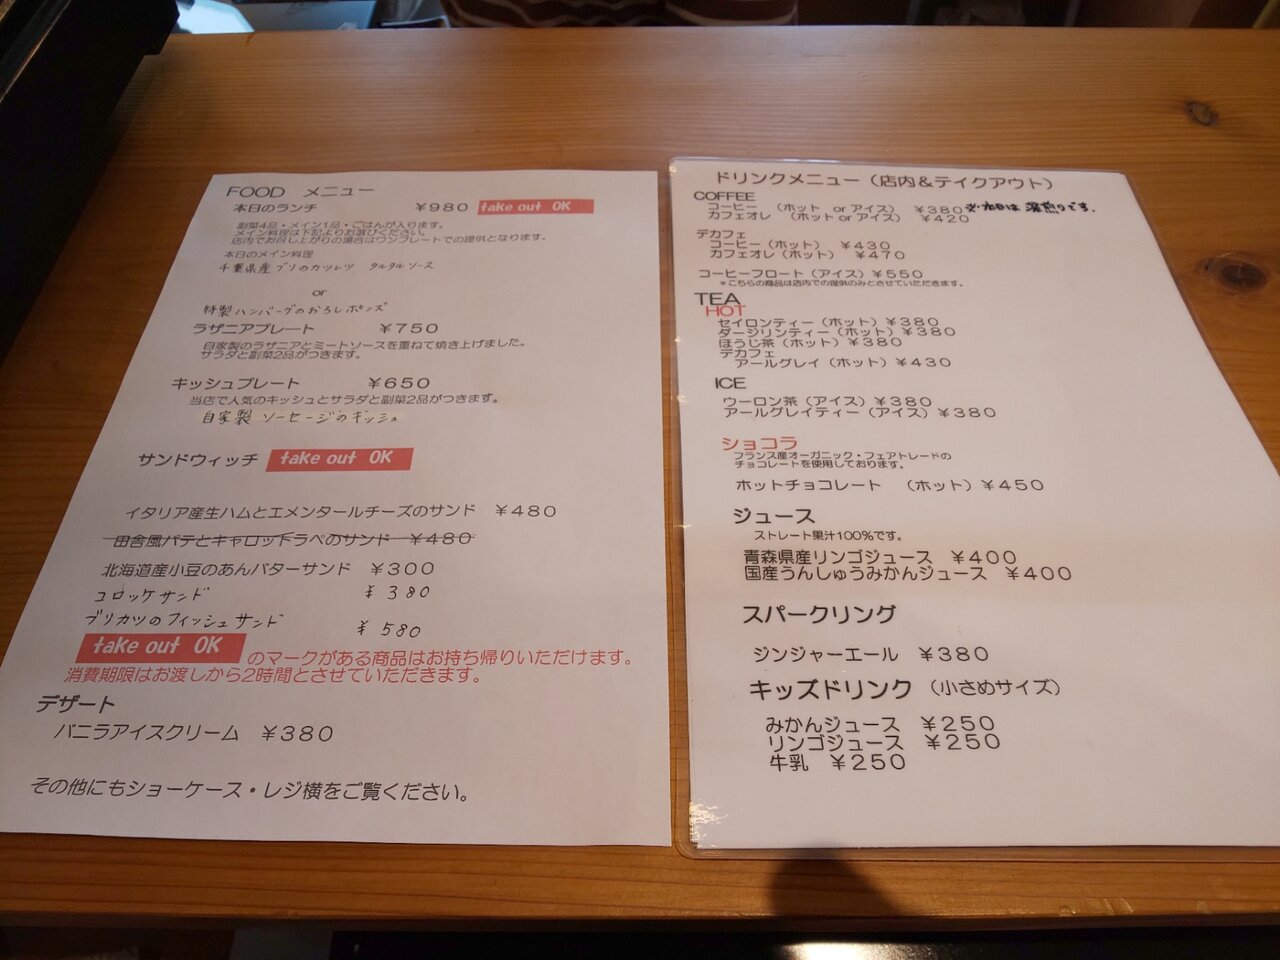 FOOD メニュー
本日のランチ ￥980 take out OK
副菜4品・メイン1品・ごはんが入ります。
メイン料理は下記よりお選びください。
店内でお召し上がりの場合はワンプレートでの提供となります。
本日のメイン料理
千葉県産ブリのカツレツ タルタルソース
or
特製ハンバーグのおろしポンズ
ラザニアプレート ￥750
自家製のラザニアとミートソースを重ねて焼き上げました。
サラダと副菜2品がつきます。
キッシュプレート ￥650
当店で人気のキッシュとサラダと副菜2品がつきます。
自家製 ソーセージのキッシュ
サンドウィッチ take out OK
イタリア産生ハムとエメンタールチーズのサンド ￥480
田舎風パテとキャロットラペのサンド ￥480
北海道産小豆のあんバターサンド ￥300
コロッケサンド ￥380
ブリカツのフィッシュサンド ￥580
take out OK のマークがある商品はお持ち帰りいただけます。
消費期限はお渡しから2時間とさせていただきます。
デザート
バニラアイスクリーム ￥380
その他にもショーケース・レジ横をご覧ください。
ドリンクメニュー（店内＆テイクアウト）
COFFEE
コーヒー （ホット or アイス） ￥380 ※本日は 深煎りです.
カフェオレ （ホット or アイス） ￥420
デカフェ
コーヒー（ホット） ￥430
カフェオレ（ホット） ￥470
コーヒーフロート（アイス）￥550
＊こちらの商品は店内での提供のみとさせていただきます。
TEA
HOT
セイロンティー（ホット）￥380
ダージリンティー（ホット）￥380
ほうじ茶（ホット）￥380
デカフェ
アールグレイ（ホット）￥430
ICE
ウーロン茶（アイス）￥380
アールグレイティー（アイス）￥380
ショコラ
フランス産オーガニック・フェアトレードの
チョコレートを使用しております。
ホットチョコレート （ホット）￥450
ジュース
ストレート果汁100％です。
青森県産リンゴジュース ￥400
国産うんしゅうみかんジュース ￥400
スパークリング
ジンジャーエール ￥380
キッズドリンク（小さめサイズ）
みかんジュース ￥250
リンゴジュース ￥250
牛乳 ￥250